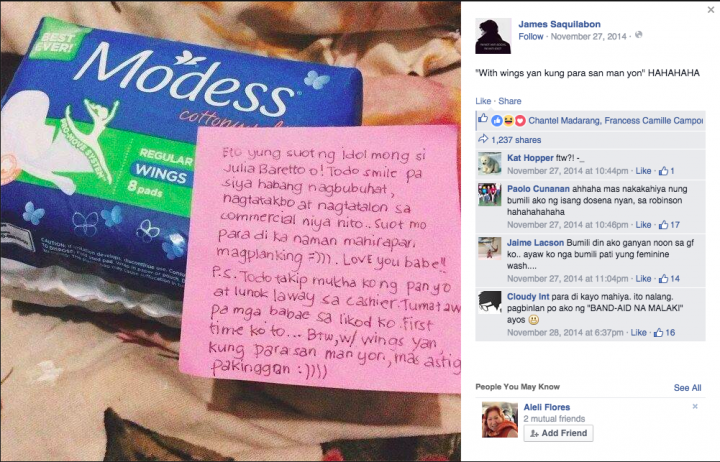 BEST
EVER!
Modess
cottony
DRI-MOVE SYSTEM
REGULAR
WINGS
8 pads
Eto yung suot ng idol mong si
Julia Baretto o! Todo smile pa
siya habang nagbubuhat,
nagtatakbo at nagtatalon sa
commercial niya nito.. Suot mo
para di ka naman mahirapang
magplanking =))). Love you babe!!
P.S. Todo takip mukha ko ng panyo
at lunok laway sa cashier. Tumatawa
pa mga babae sa likod ko. First
time ko to... Btw, w/ wings yan
kung para san man yon, mas astig
pakinggan :))))
James Saquilabon
Follow · November 27, 2014 ·
"With wings yan kung para san man yon" HAHAHAHA
Like · Share
Chantel Madarang, Francess Camille Campor
1,237 shares
Kat Hopper ftw?! -_
November 27, 2014 at 10:44pm · Like · 1
Paolo Cunanan ahhaha mas nakakahiya nung
bumili ako ng isang dosena nyan, sa robinson
hahahahahaha
November 27, 2014 at 10:46pm · Like · 17
Jaime Lacson Bumili din ako ganyan noon sa gf
ko.. ayaw ko nga bumili pati yung feminine
wash....
November 27, 2014 at 11:04pm · Like · 14
Cloudy Int para di kayo mahiya. ito nalang.
pagbinlan po ako ng "BAND-AID NA MALAKI"
ayos
November 28, 2014 at 6:37pm · Like · 16
People You May Know
See All
Aleli Flores
2 mutual friends
Add Friend